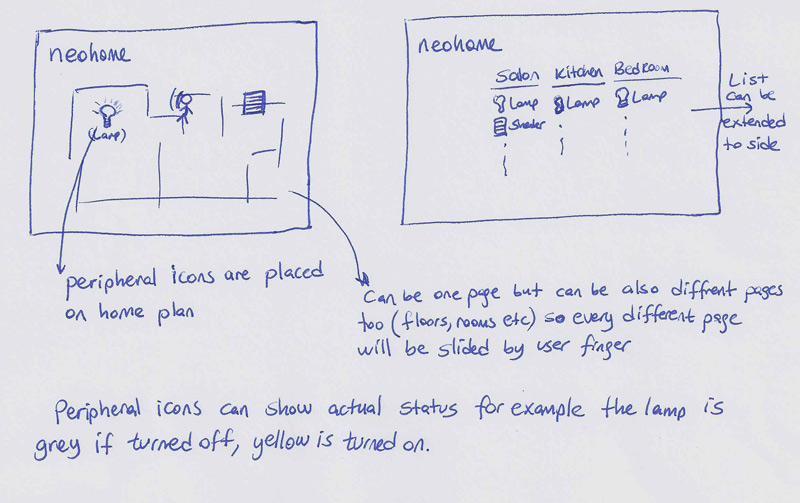 neohome
(Lamp)
peripheral icons are placed
on home plan
neohome
Salon Kitchen Bedroom
Lamp Lamp Lamp
Shader
List
can be
extended
to side
Can be one page but can be also diffrent pages
too (floors, rooms etc) so every different page
will be slided by user finger
Peripheral icons can show actual status for example the lamp is
grey if turned off, yellow is turned on.